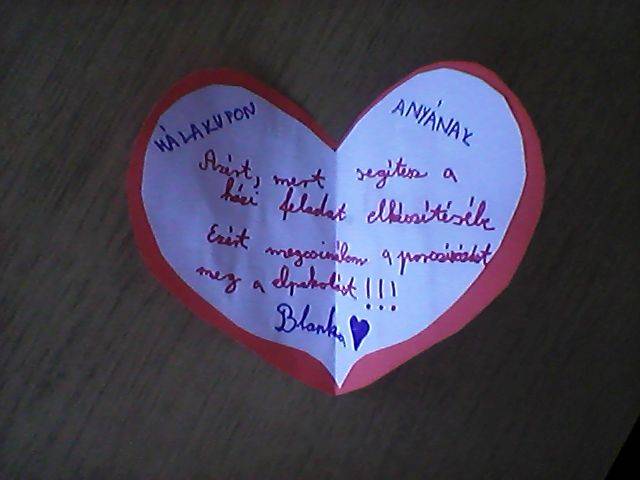 HÁLAKUPON
ANYÁNAK
Azért, mert segítesz a
házi feladat elkészítésébe
Ezért megcsinálom a porszívózást
meg a elpakolást!!!
Blanka